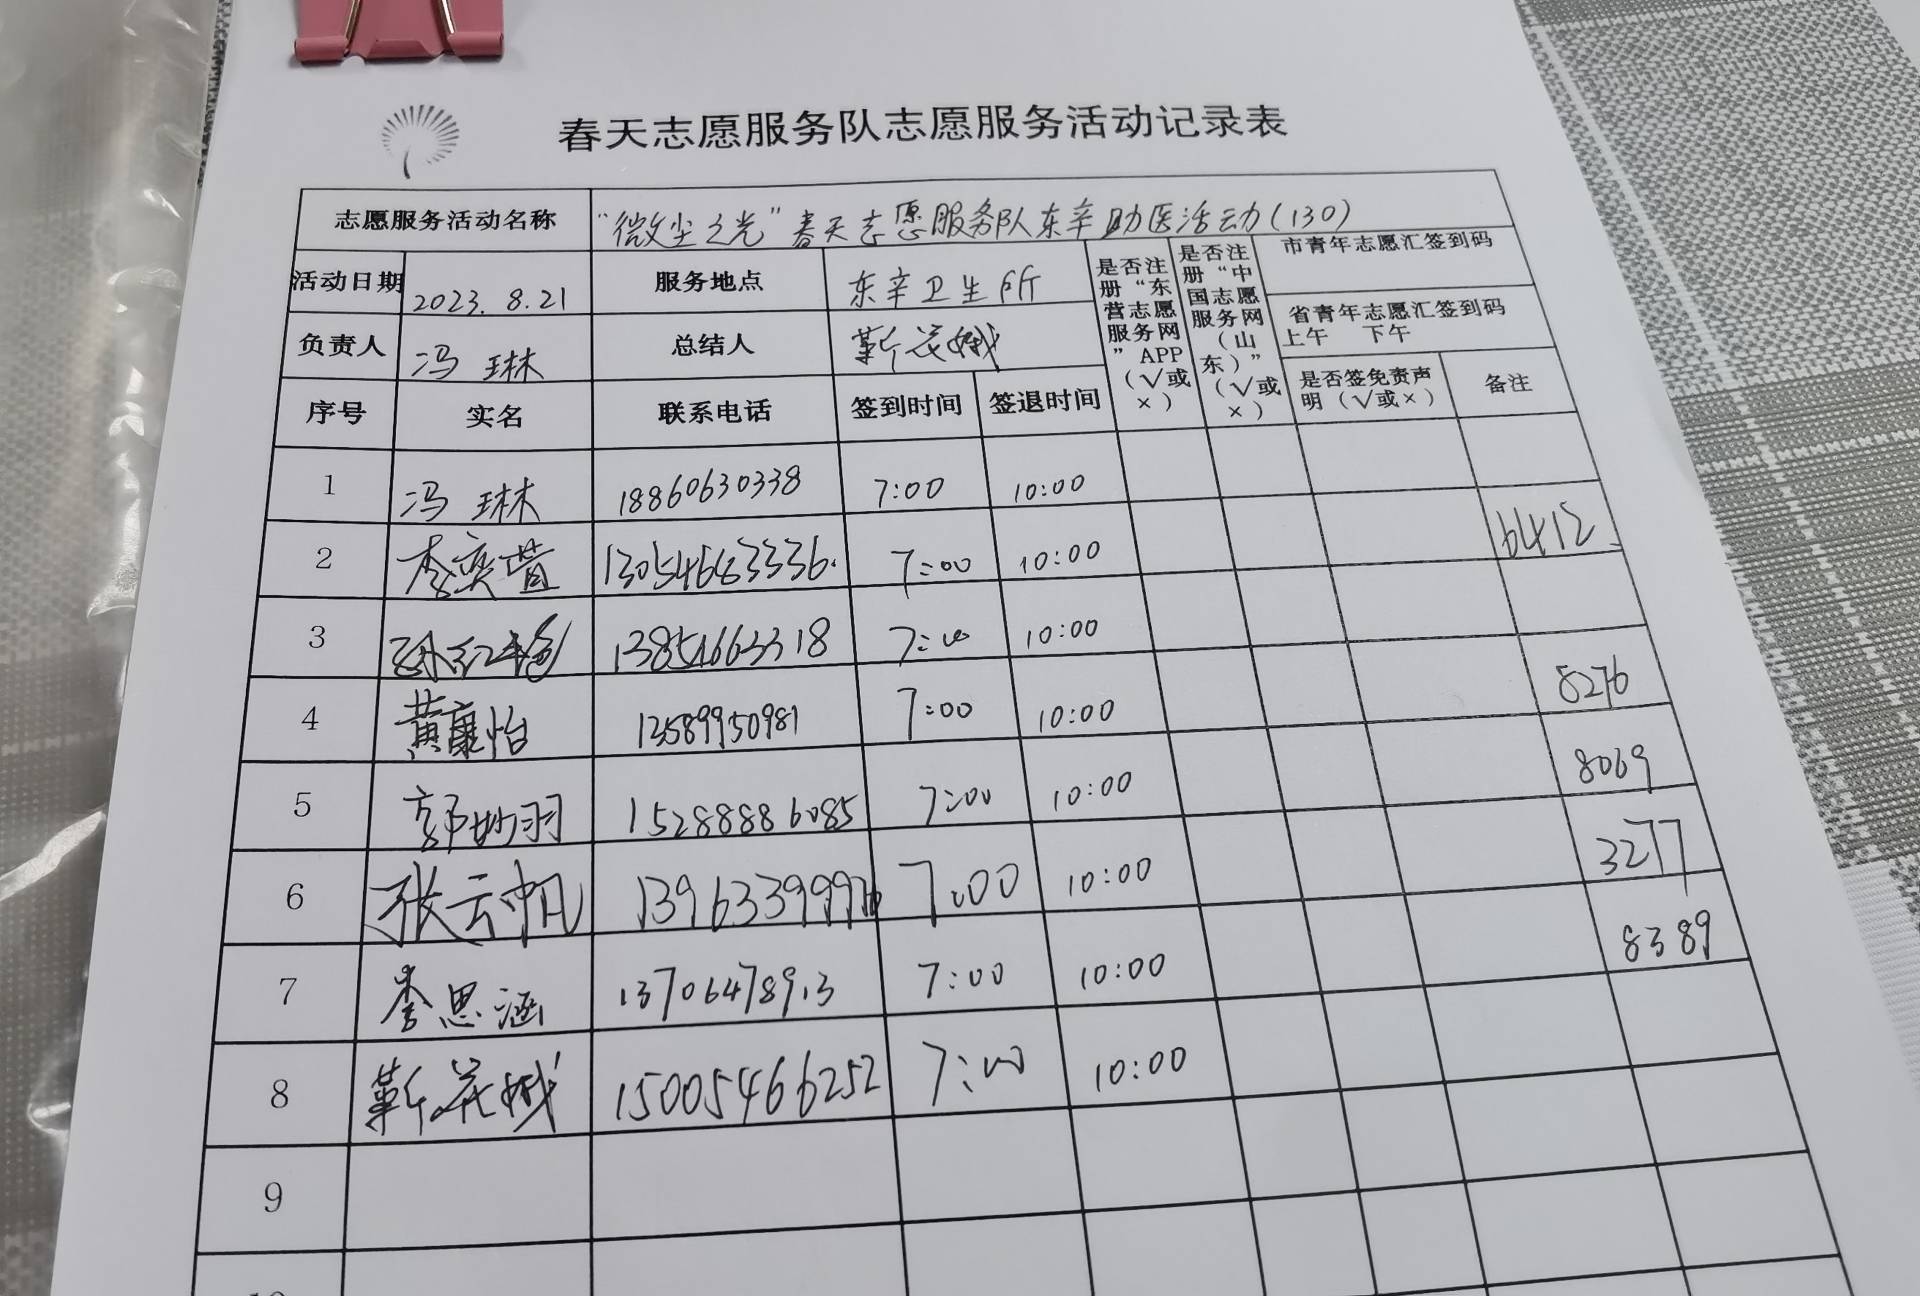 春天志愿服务队志愿服务活动记录表
志愿服务活动名称 “微尘之光”春天志愿服务队东辛助医活动(130)
活动日期 2023.8.21 服务地点 东辛卫生所
是否注册“东营志愿服务网”APP（√或×）
是否注册“中国志愿服务网（山东）”（√或×）
市青年志愿汇签到码
省青年志愿汇签到码
上午 下午
负责人 冯琳 总结人 靳花娥
序号 实名 联系电话 签到时间 签退时间 是否签免责声明（√或×） 备注
1 冯琳 18860630338 7:00 10:00
2 李奕萱 13054683336. 7:00 10:00 6412
3 孙红艳 13854663318 7:00 10:00
4 黄康怡 13589950981 7:00 10:00 8276
5 郭妙羽 15288886085 7:00 10:00 8069
6 张云帆 13963399976 7:00 10:00 3277
7 李思涵 13706478913 7:00 10:00 8389
8 靳花娥 15005466252 7:00 10:00
9